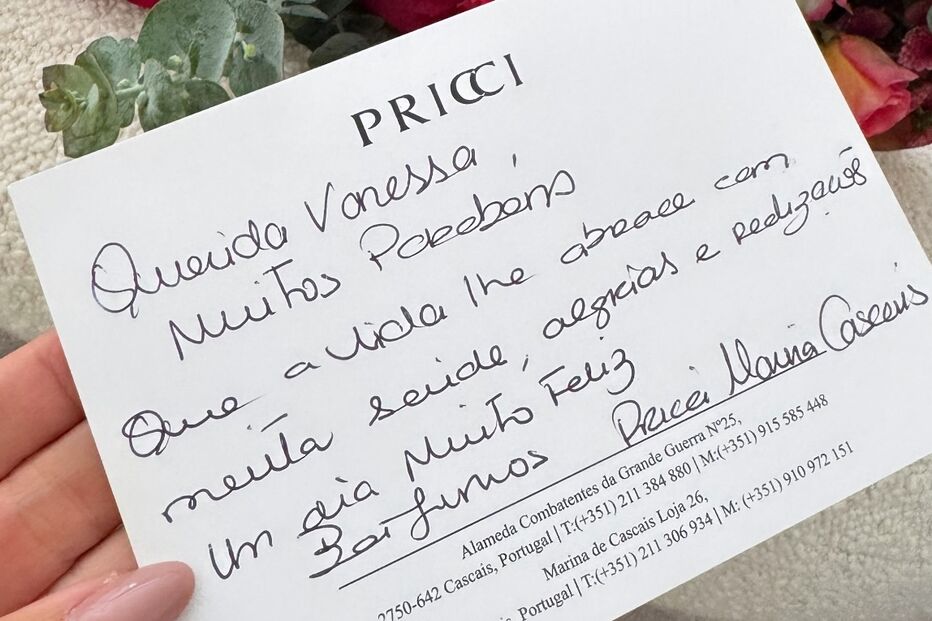 PRICCI
Querida Vanessa,
Muitos Parabens
Que a vida lhe abrace com
muita saúde, alegrias e realizações
Um dia Muito Feliz
Pricci Marina Cascais
Alameda Combatentes da Grande Guerra Nº25,
2750-642 Cascais, Portugal | T:(+351) 211 384 880 | M:(+351) 915 585 448
Marina de Cascais Loja 26,
Portugal | T:(+351) 211 306 934 | M: (+351) 910 972 151